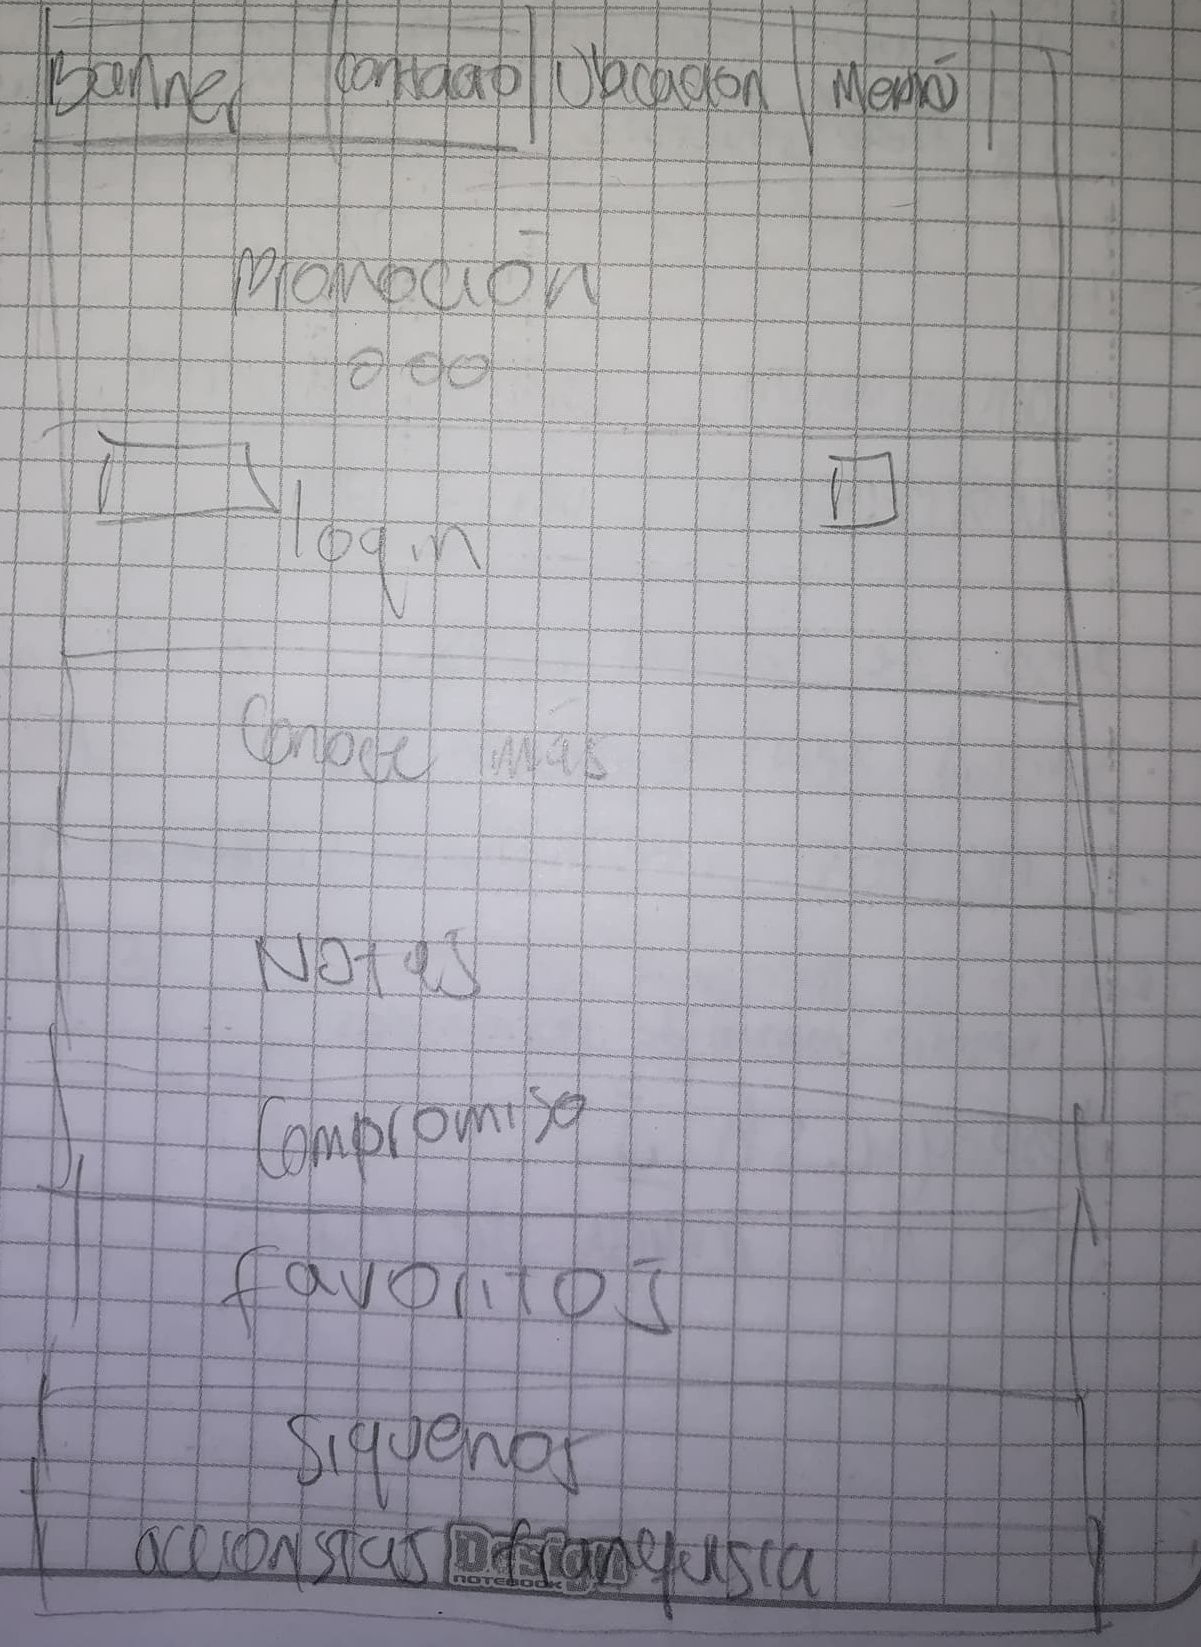 Banner Contacto Ubicación Menú
Promoción
login
Conoce más
Notas
Compromiso
favoritos
Siguenos
accionstas franquisia
Design
NOTEBOOK